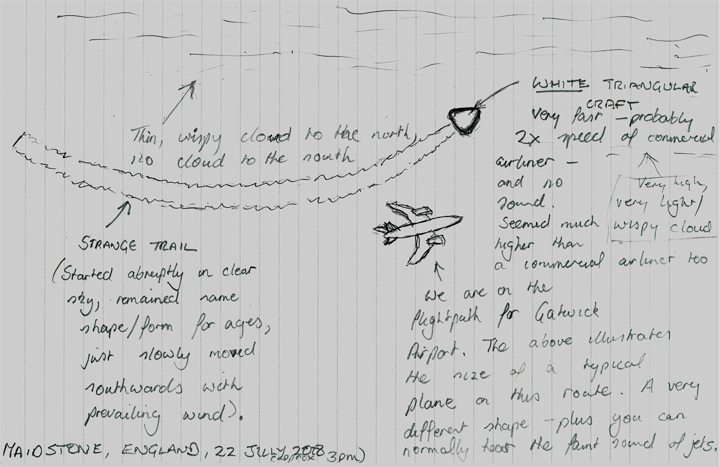 Thin, wispy cloud to the north,
no cloud to the south
WHITE TRIANGULAR
CRAFT
Very fast - probably
2x speed of commercial
airliner -
and no
sound.
Seemed much
higher than
a commercial airliner too
Very high,
very light/
wispy cloud
STRANGE TRAIL
(Started abruptly in clear
sky, remained same
shape/form for ages,
just slowly moved
southwards with
prevailing wind).
We are on the
flightpath for Gatwick
Airport. The above illustrates
the size of a typical
plane on this route. A very
different shape - plus you can
normally hear the faint sound of jets.
MAIDSTONE, ENGLAND, 22 JULY, 3pm)